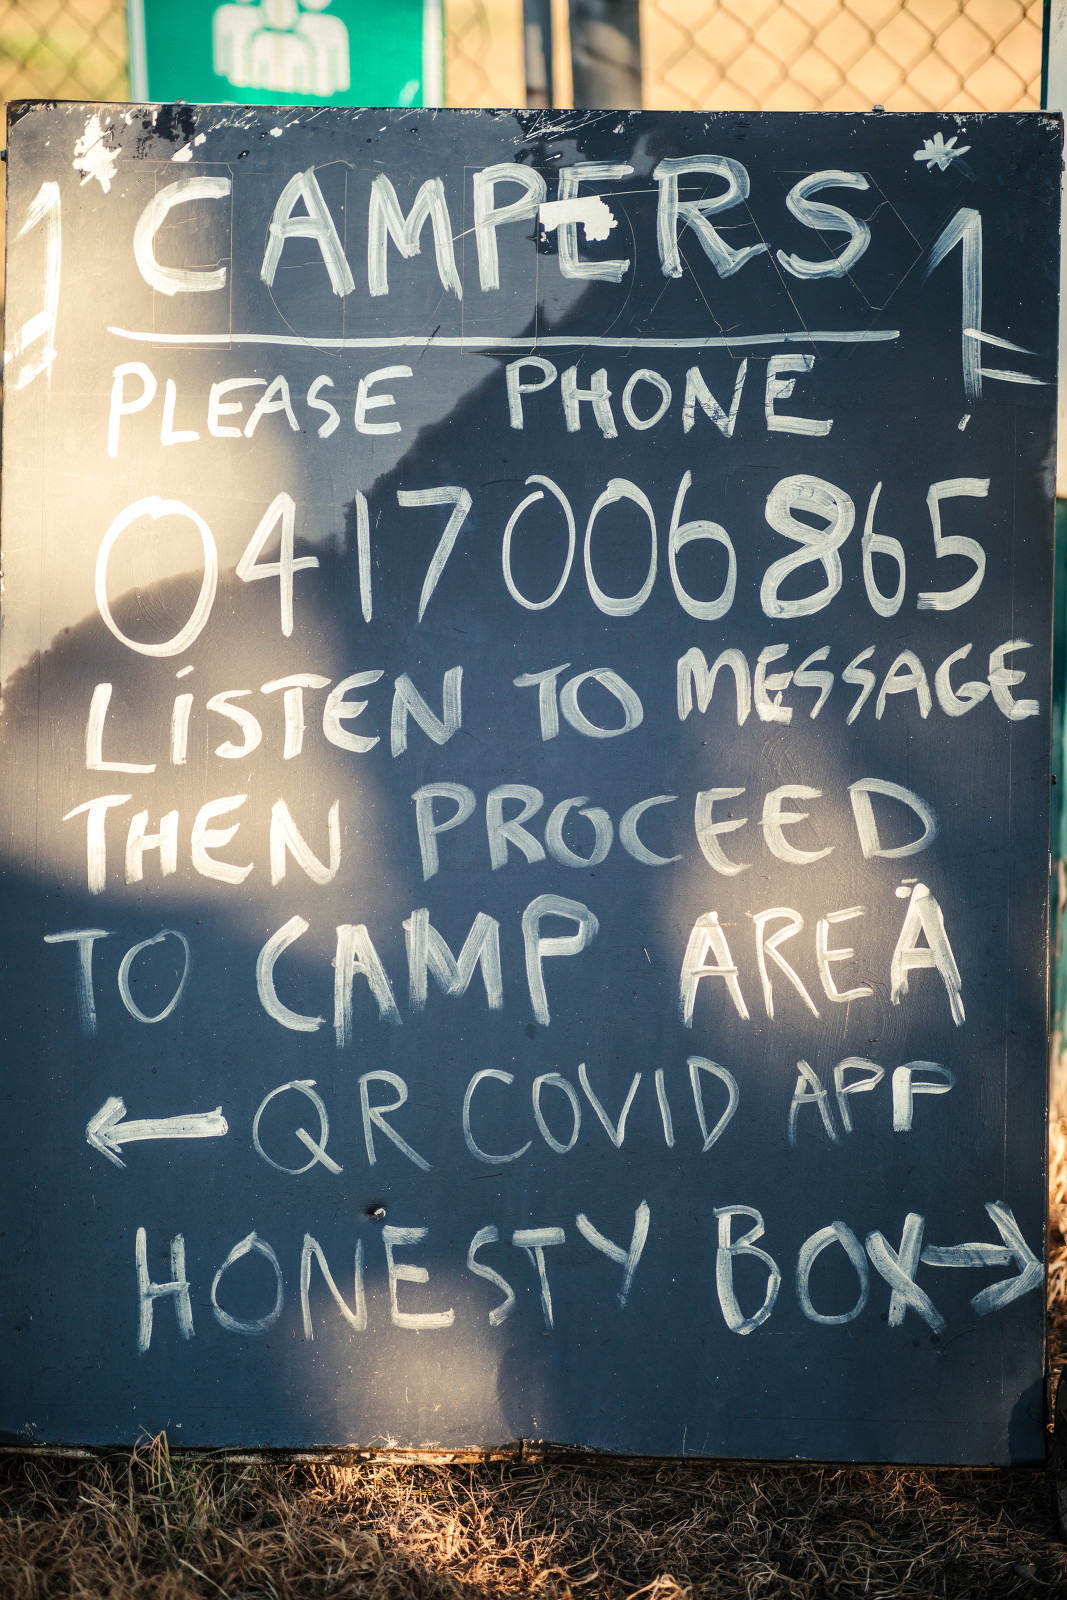 * CAMPERS *
PLEASE PHONE
0417 006 865
LiSTEN TO MESSAGE
THEN PROCEED
TO CAMP AREA
← QR COVID APP
HONESTY BOX →